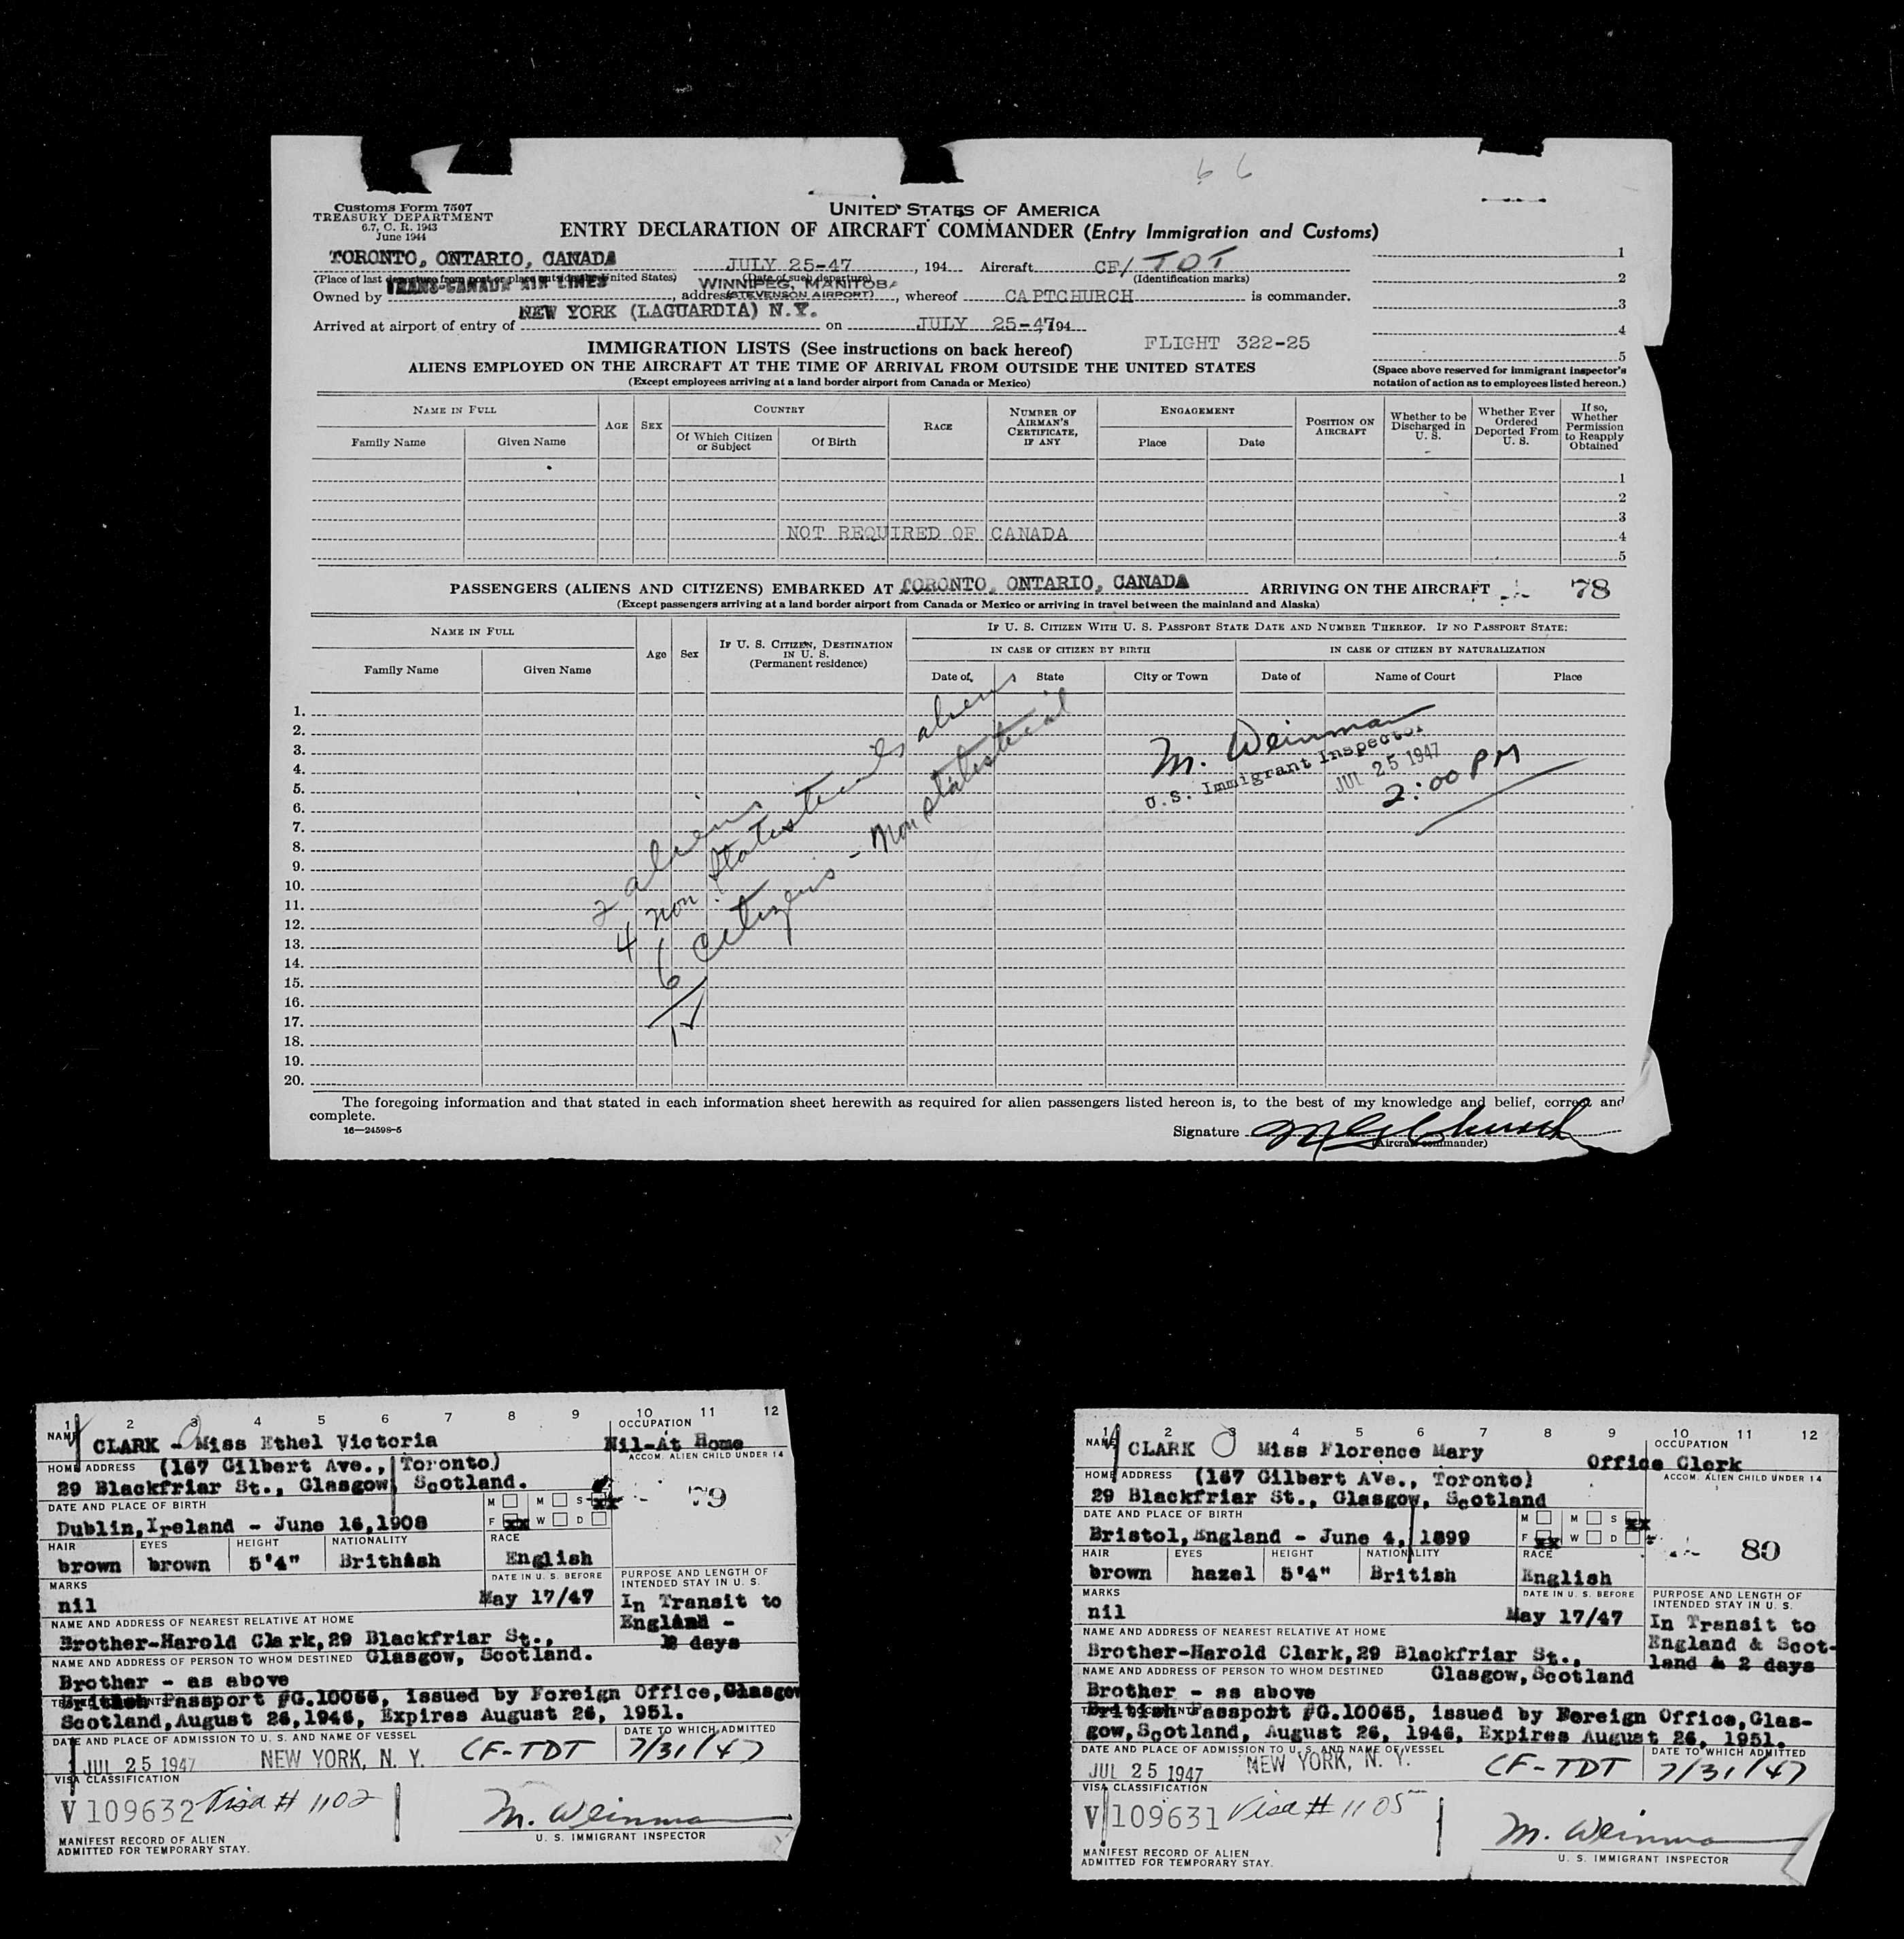 6 6
Customs Form 7507
TREASURY DEPARTMENT
6.7, C. R. 1943
June 1944
UNITED STATES OF AMERICA
ENTRY DECLARATION OF AIRCRAFT COMMANDER (Entry Immigration and Customs)
TORONTO, ONTARIO, CANADA JULY 25-47, 194 Aircraft CF/TDT 1
(Place of last departure from port or place outside the United States) (Date of such departure) (Identification marks) 2
Owned by TRANS-CANADA AIR LINES, address WINNIPEG, MANITOBA (STEVENSON AIRPORT), whereof CAPTCHURCH is commander. 3
Arrived at airport of entry of NEW YORK (LAGUARDIA) N.Y. on JULY 25-47 194 4
FLIGHT 322-25
IMMIGRATION LISTS (See instructions on back hereof) 5
ALIENS EMPLOYED ON THE AIRCRAFT AT THE TIME OF ARRIVAL FROM OUTSIDE THE UNITED STATES (Space above reserved for immigrant inspector's
(Except employees arriving at a land border airport from Canada or Mexico) notation of action as to employees listed hereon.)
NAME IN FULL AGE SEX COUNTRY RACE NUMBER OF AIRMAN'S CERTIFICATE, IF ANY ENGAGEMENT POSITION ON AIRCRAFT Whether to be Discharged in U. S. Whether Ever Ordered Deported From U. S. If so, Whether Permission to Reapply Obtained
Family Name Given Name Of Which Citizen or Subject Of Birth Place Date
1
2
3
NOT REQUIRED OF CANADA 4
5
PASSENGERS (ALIENS AND CITIZENS) EMBARKED AT TORONTO, ONTARIO, CANADA ARRIVING ON THE AIRCRAFT 78
(Except passengers arriving at a land border airport from Canada or Mexico or arriving in travel between the mainland and Alaska)
NAME IN FULL Age Sex IF U. S. CITIZEN, DESTINATION IN U. S. (Permanent residence) IF U. S. CITIZEN WITH U. S. PASSPORT STATE DATE AND NUMBER THEREOF. IF NO PASSPORT STATE:
IN CASE OF CITIZEN BY BIRTH IN CASE OF CITIZEN BY NATURALIZATION
Family Name Given Name Date of, State City or Town Date of Name of Court Place
1.
2.
3.
4.
5.
6.
7.
8.
9.
10.
11.
12.
13.
14.
15.
16.
17.
18.
19.
20.
2 aliens
4 non statisticals aliens
6 citizens - Non statistical
12
M. Weinman
U.S. Immigrant Inspector
JUL 25 1947
2:00 PM
The foregoing information and that stated in each information sheet herewith as required for alien passengers listed hereon is, to the best of my knowledge and belief, correct and
complete.
16—24598-5
Signature
(Aircraft commander)
1 2 3 4 5 6 7 8 9 10 11 12
NAME CLARK - Miss Ethel Victoria OCCUPATION Nil-At Home
HOME ADDRESS (167 Gilbert Ave., Toronto) ACCOM. ALIEN CHILD UNDER 14
29 Blackfriar St., Glasgow, Scotland.
DATE AND PLACE OF BIRTH M M S xx 79
Dublin, Ireland - June 16, 1908 F xx W D
HAIR EYES HEIGHT NATIONALITY RACE
brown brown 5'4" Brithish English
MARKS DATE IN U. S. BEFORE PURPOSE AND LENGTH OF INTENDED STAY IN U. S.
nil May 17/47 In Transit to
England -
2 days
NAME AND ADDRESS OF NEAREST RELATIVE AT HOME
Brother-Harold Clark, 29 Blackfriar St.,
NAME AND ADDRESS OF PERSON TO WHOM DESTINED Glasgow, Scotland.
Brother - as above
British Passport #G.10066, issued by Foreign Office, Glasgow
Scotland, August 26, 1946, Expires August 26, 1951.
DATE AND PLACE OF ADMISSION TO U. S. AND NAME OF VESSEL DATE TO WHICH ADMITTED
JUL 25 1947 NEW YORK, N. Y. CF-TDT 7/31/47
VISA CLASSIFICATION
V 109632 Visa # 1102 M. Weinman
U. S. IMMIGRANT INSPECTOR
MANIFEST RECORD OF ALIEN
ADMITTED FOR TEMPORARY STAY.
1 2 3 4 5 6 7 8 9 10 11 12
NAME CLARK Miss Florence Mary OCCUPATION Office Clerk
HOME ADDRESS (167 Gilbert AVe., Toronto) ACCOM. ALIEN CHILD UNDER 14
29 Blackfriar St., Glasgow, Scotland
DATE AND PLACE OF BIRTH M M S xx
Bristol, England - June 4, 1899 F xx W D 80
HAIR EYES HEIGHT NATIONALITY RACE
brown hazel 5'4" British English
MARKS DATE IN U. S. BEFORE PURPOSE AND LENGTH OF INTENDED STAY IN U. S.
nil May 17/47 In Transit to
England & Scot-
land & 2 days
NAME AND ADDRESS OF NEAREST RELATIVE AT HOME
Brother-Harold Clark, 29 Blackfriar St.,
NAME AND ADDRESS OF PERSON TO WHOM DESTINED Glasgow, Scotland
Brother - as above
British Passport #G.10065, issued by Foreign Office, Glas-
gow, Scotland, August 26, 1946, Expires August 26, 1951.
DATE AND PLACE OF ADMISSION TO U. S. AND NAME OF VESSEL DATE TO WHICH ADMITTED
JUL 25 1947 NEW YORK, N. Y. CF-TDT 7/31/47
VISA CLASSIFICATION
V 109631 Visa # 1105 M. Weinman
U. S. IMMIGRANT INSPECTOR
MANIFEST RECORD OF ALIEN
ADMITTED FOR TEMPORARY STAY.